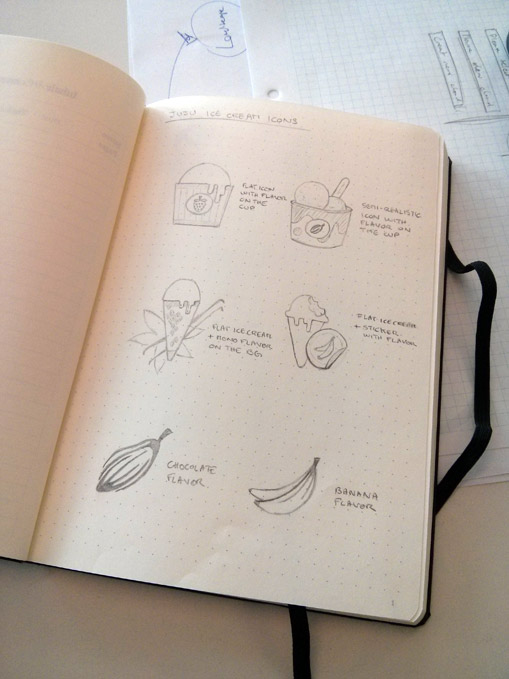 JUJU ICE CREAM ICONS
FLAT ICON
WITH FLAVOR
ON THE
CUP
SEMI-REALISTIC
ICON WITH
FLAVOR ON
THE CUP
FLAT ICE CREAM
+ MONO FLAVOR
ON THE BG
FLAT ICE CREAM
+ STICKER
WITH FLAVOR
CHOCOLATE
FLAVOR
BANANA
FLAVOR
1